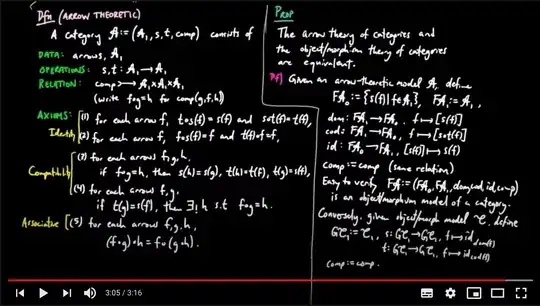 Dfn (ARROW THEORETIC)
A category A := (A₁, s, t, comp) consists of
DATA: arrows, A₁
OPERATIONS: s, t : A₁ → A₁
RELATION: comp A₁×A₁×A₁
(write f∘g=h for comp(g,f,h))
AXIOMS:
Identity
(1) for each arrow f, t∘s(f) = s(f) and s∘t(f) = t(f),
(2) for each arrow f, f∘s(f) = f and t(f)∘f = f,
Compatibility
(3) for each arrows f, g, h,
if f∘g=h, then s(h) = s(g), t(h) = t(f), t(g) = s(f),
(4) for each arrows f, g,
if t(g) = s(f), then ∃! h s.t f∘g=h.
Associative
(5) for each arrow f, g, h,
(f∘g)∘h = f∘(g∘h).
PROP
The arrow theory of categories and
the object/morphism theory of categories
are equivalent.
Pf) Given an arrow-theoretic model A, define
FA₀ := {s(f) | f∈A₁}, FA₁ := A₁,
dom: FA₁ → FA₀, f ↦ [s(f)]
cod: FA₁ → FA₀, f ↦ [s∘t(f)]
id: FA₀ → FA₁, [s(f)] ↦ s(f)
comp := comp (same relation)
Easy to verify, FA := (FA₀, FA₁, dom, cod, id, comp)
is an object/morphism model of a category.
Conversely, given object/morph model C, define
GC₁ := C₁, s: GC₁ → GC₁, f ↦ id_dom(f)
t: GC₁ → GC₁, f ↦ id_cod(f)
comp := comp.
3:05 / 3:16